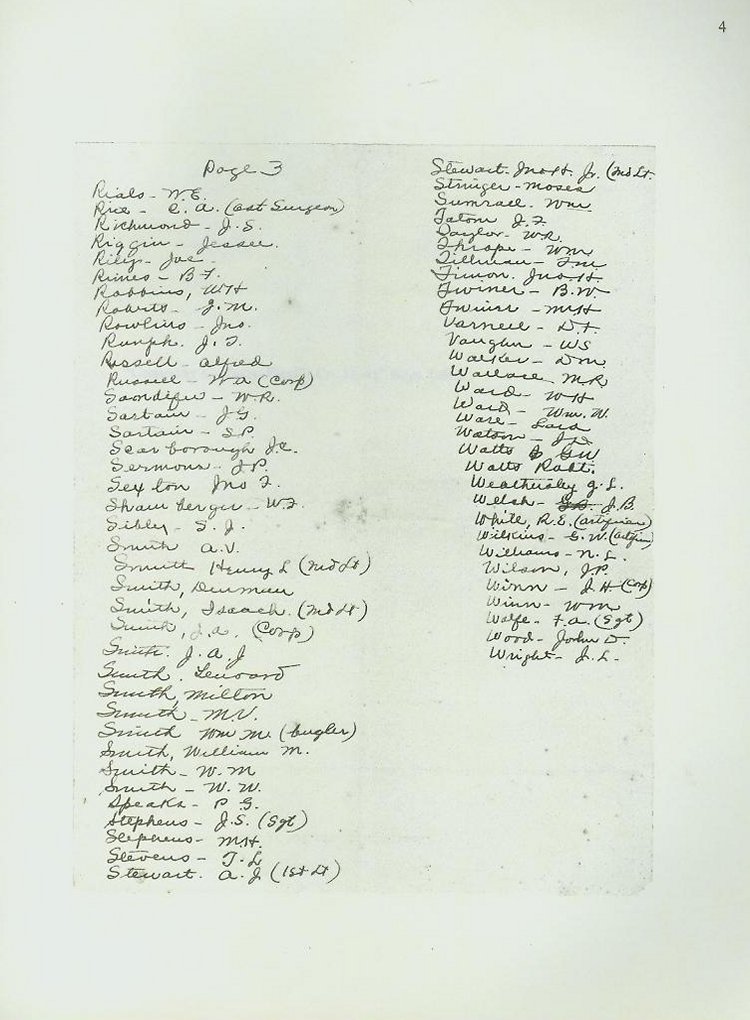 4
Page 3
Rials - W.E.
Rice - C. A. (Asst Surgeon)
Richmond - J. S.
Riggin - Jessee
Riley - Joe
Rimes - B F.
Robbins, WH
Roberts - J. M.
Rowlins - Jno.
Rumph. J. T.
Russell - Alfred
Russell - W A (Corp)
Sandifer - W. R.
Sartain - J G.
Sartain - S P.
Scarborough J. C.
Sermons - J P.
Sexton Jno F.
Sham berger - W. F.
Sibley - S. J.
Smith A. V.
Smith Henry L (2nd Lt)
Smith, Durman
Smith, Isaach. (2nd Lt)
Smith, J. A. (Corp)
Smith. J. A. J
Smith. Leonard
Smith, Milton
Smith - M. V.
Smith Wm M. (bugler)
Smith, William M.
Smith - W. M
Smith - W. W.
Speaks - P G.
Stephens - J. S. (Sgt)
Stephens - M. H.
Stevens - T. L
Stewart. A. J (1st Lt)
Stewart. Jno H. Jr. (2nd Lt.
Stringer - Moses
Sumrall - Wm
Tatom J. F.
Taylor - W R.
Thrope - Wm
Tillman - T M
Timon. Jno. H.
Twiner - B. W
Twiner - M H
Varnell - D. F.
Vaughn - W S
Walker - D M.
Wallace M R
Ward - W H
Ward - Wm. W.
Ware -
Watson - J
Watts G W
Watts Robt.
Weathersby G. L.
Welsh - J. B
White, R. E. (artifician)
Wilkins - G. W.
Williams - N. L.
Wilson, J. P.
Winn - J. H. (Corp)
Winn - Wm
Wolfe - F. A. (Sgt)
Wood - John D.
Wright - J. L.